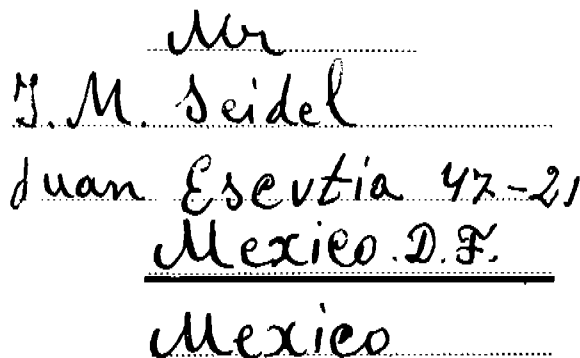 Mr
J. M. Seidel
Juan Escutia 47-21
Mexico. D. F.
Mexico